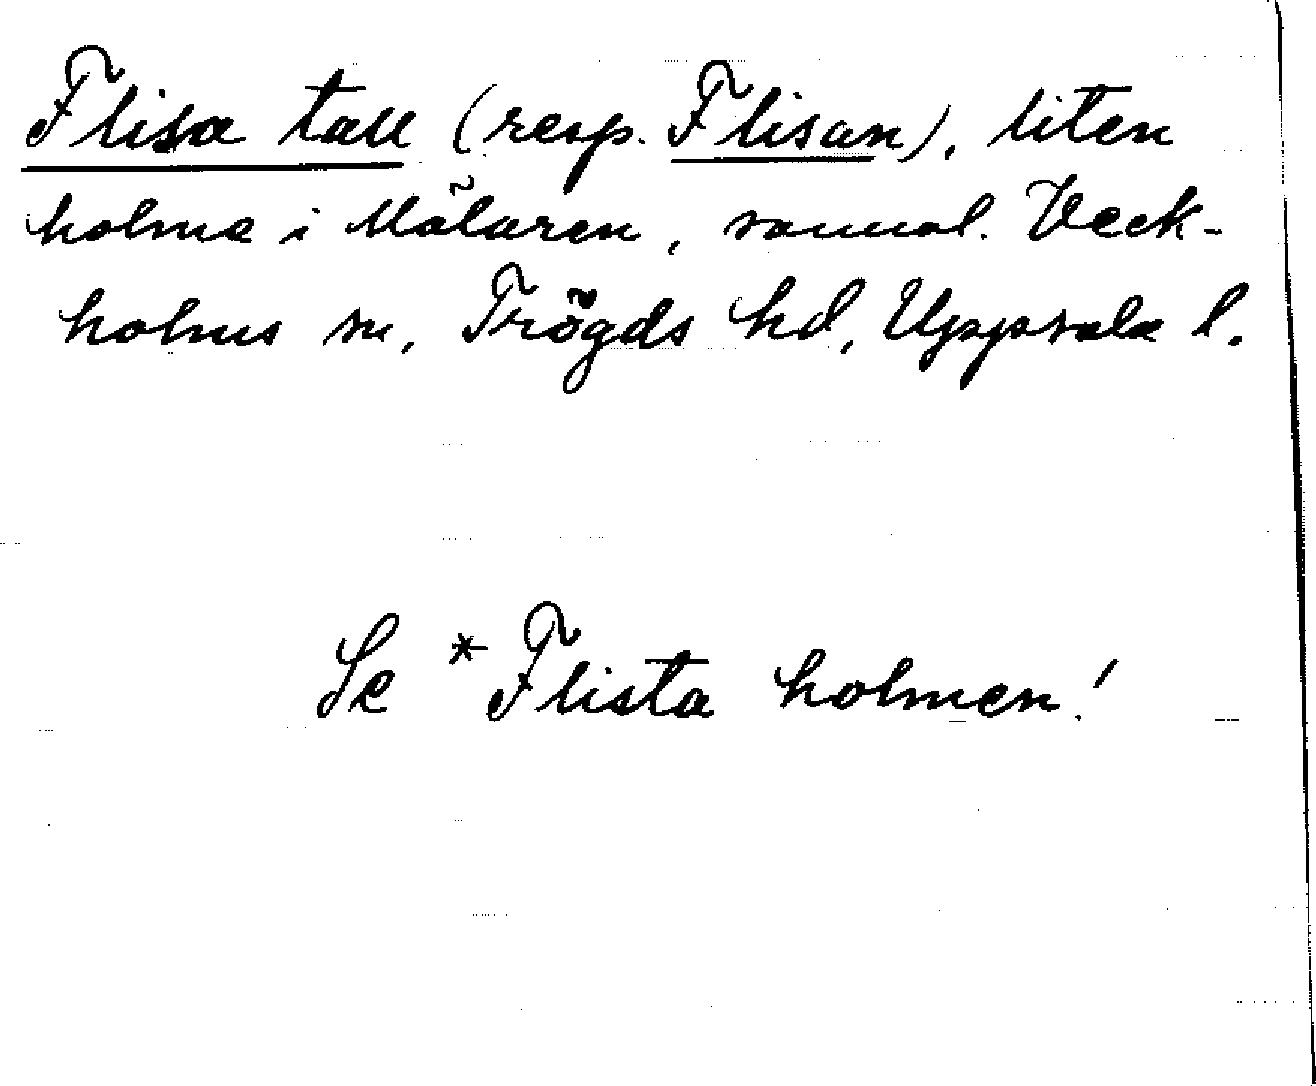 Flisa tall (resp. Flisan), liten
holme i Mälaren, sannol. Veck-
holms sn, Trögds hd, Uppsala l.
Se *Flista holmen!